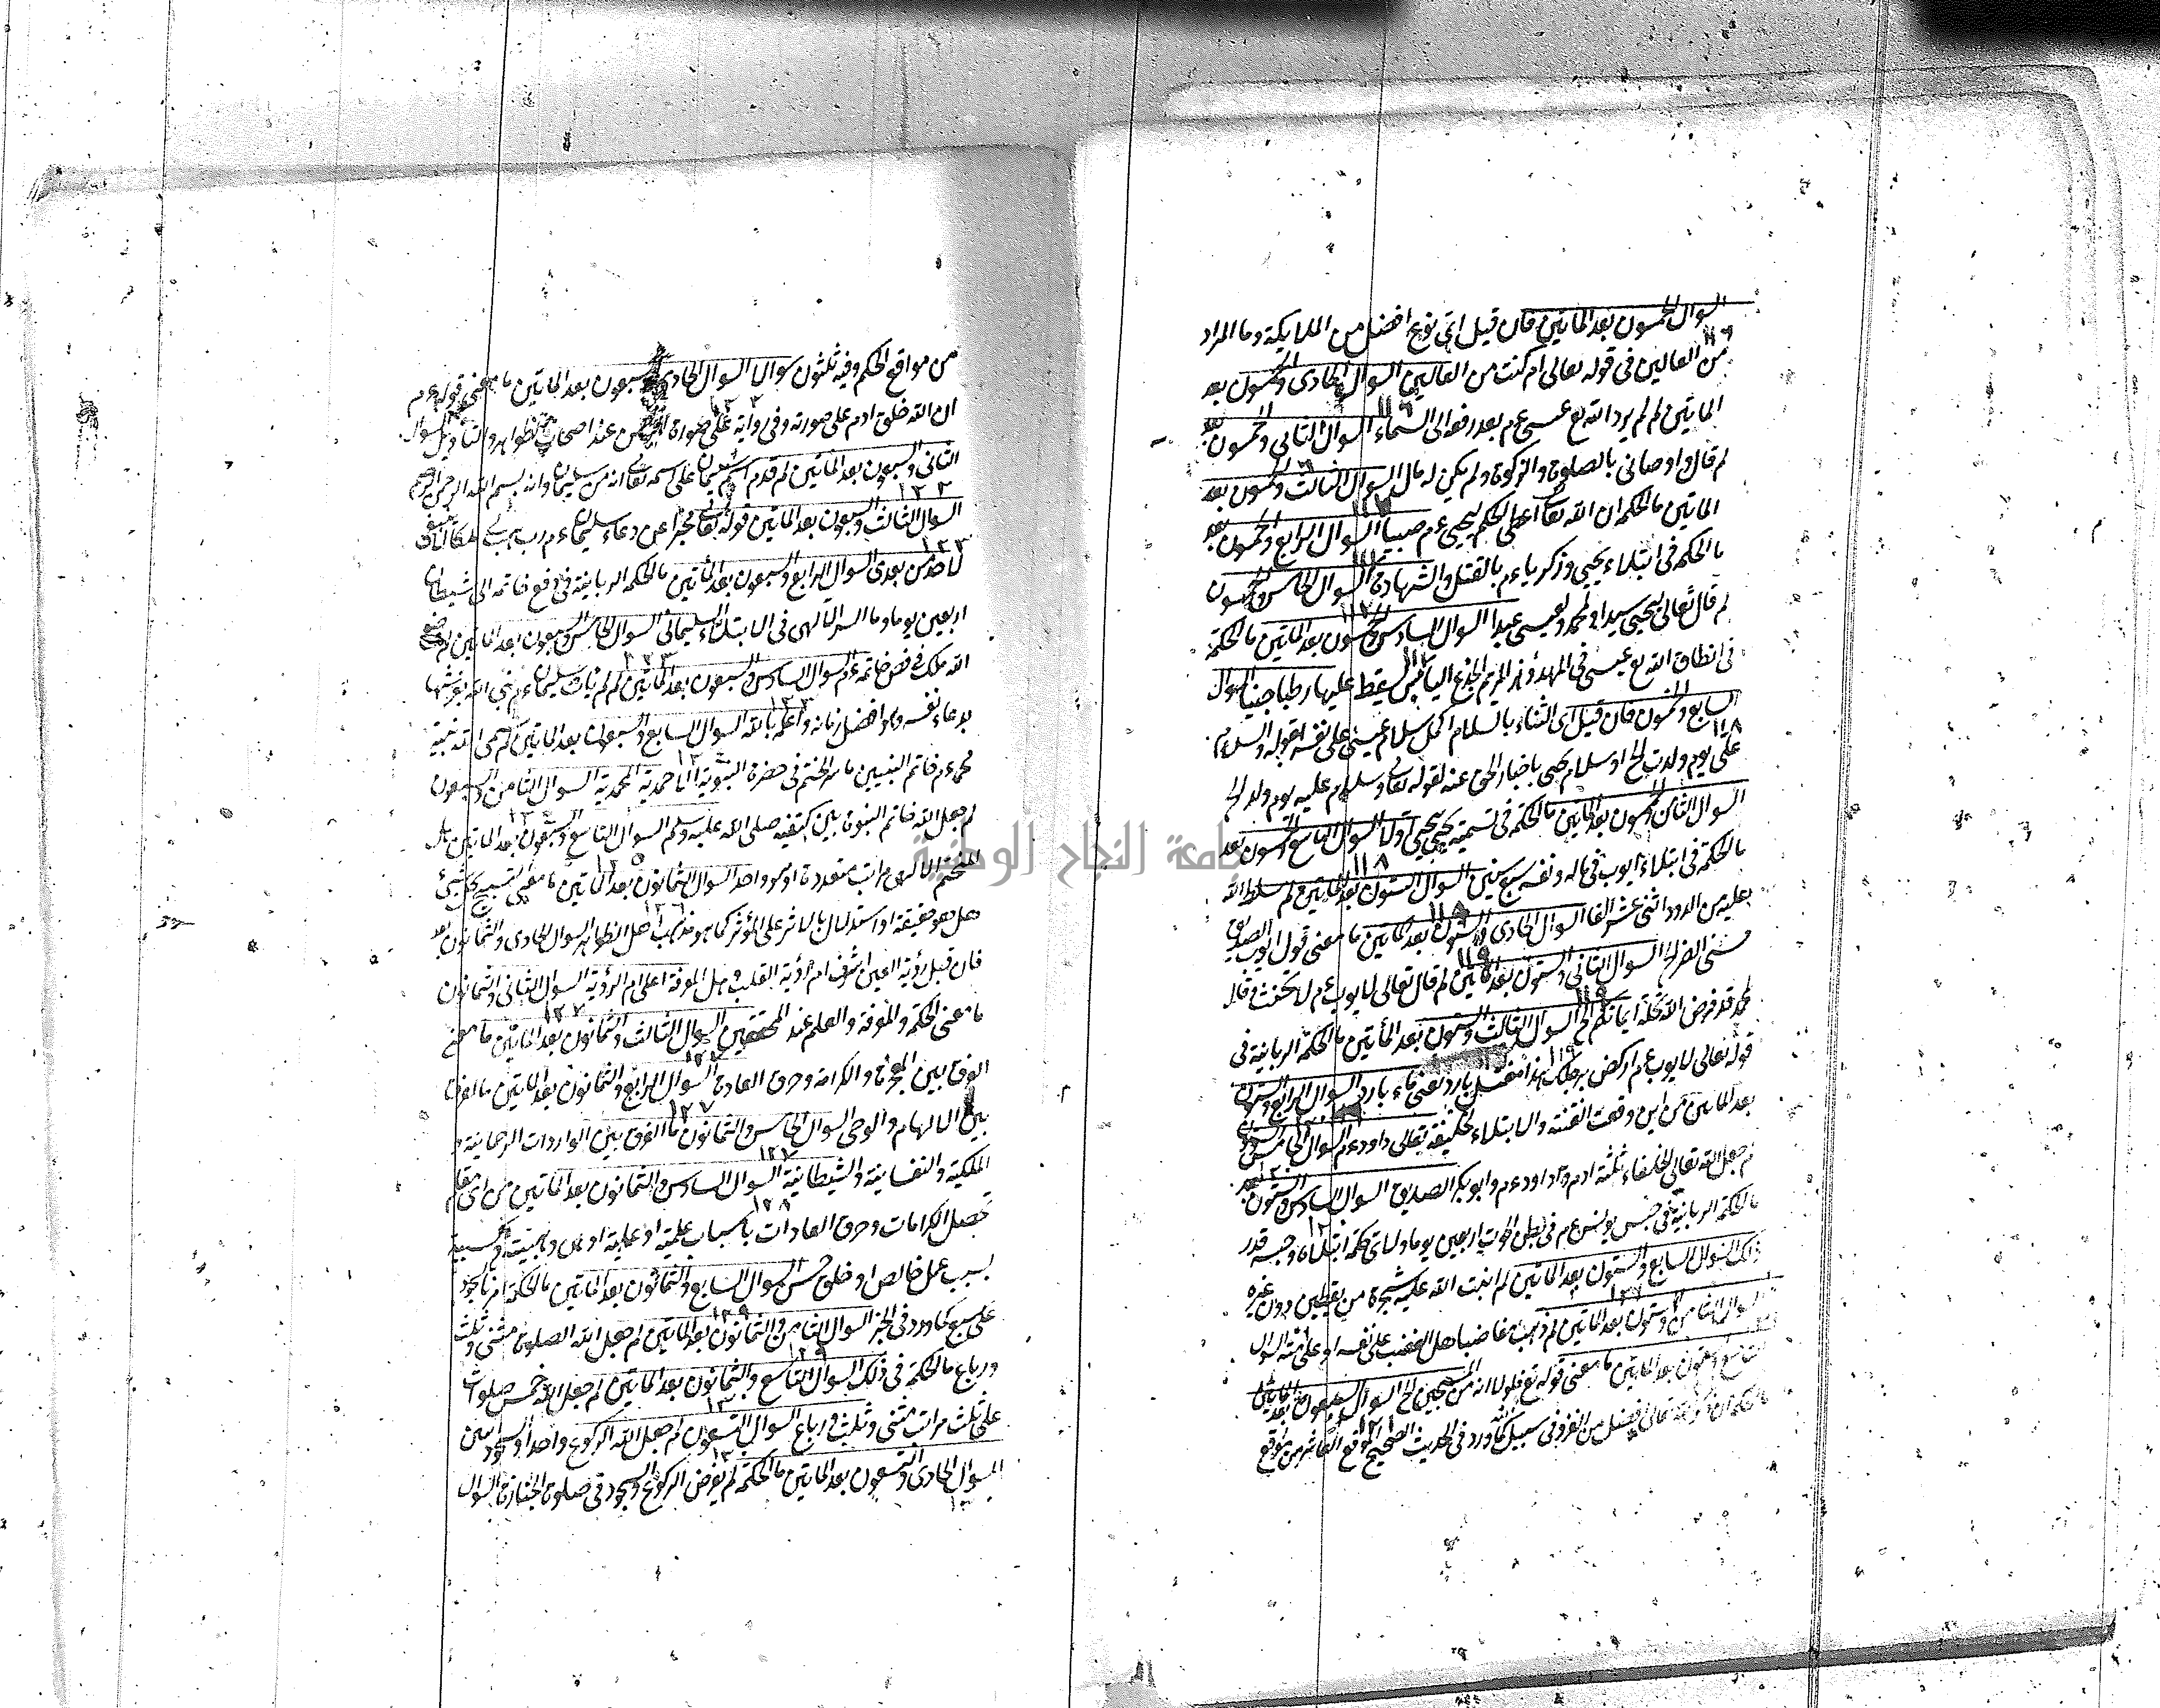 السوال الخمسون بعد المايتين فان قيل اي نوع افضل من الملايكة وما المراد
من العالين في قوله تعالى ام كنت من العالين السوال الحادي والخمسون بعد
المايتين لم لم يرد الله تع عيسى عم بعد رفعه الى السماء السوال الثاني والخمسون بعد
لم قال واوصاني بالصلوة والزكوة ولم يكن له مال السوال الثالث والخمسون بعد
المايتين ما الحكمة ان الله تعالى اعطى الحكم ليحيى عم صبيا السوال الرابع والخمسون بعد
ما الحكمة في ابتلاء يحيى وزكرياء عم بالقتل والشهادة السوال الخامس والخمسون
لم قال تعالى ليحيى سيدا ولمحمد ولعيسى عبدا السوال السادس والخمسون بعد المايتين ما الحكمة
في انطاق الله تع عيسى في المهد وهز المريم الجذع اليابس ليسقط عليها رطبا جنيا السوال
السابع والخمسون فان قيل اي الثناء بالسلام اكمل سلام عيسى على نفسه لقوله والسلام
على يوم ولدت الخ او سلام يحيى باخبار الحق عنه لقوله تعالى وسلام عليه يوم ولد الخ
السوال الثامن والخمسون بعد المايتين ما الحكمة في تسمية يحيى بيحيى اولا السوال التاسع والخمسون بعد
ما الحكمة في ابتلاء ايوب في ماله ونفسه سبع سنين السوال الستون بعد المايتين لم سلط الله
عليه من الدود اثنى عشر الفا السوال الحادي والستون بعد المايتين ما معنى قول ايوب الصديق
مسني الضر الخ السوال الثاني والستون بعد المايتين لم قال تعالى لايوب عم لا تحنث وقال
لمحمد قد فرض الله تحلة ايمانكم الخ السوال الثالث والستون بعد المأتين ما الحكمة الربانية في
قوله تعالى لايوب عم اركض برجلك هذا مغتسل بارد يعني ماء بارد السوال الرابع والستون
بعد المايتين من اين وقعت الفتنة والابتلاء لخليفة تعالى داود عم السوال الخامس والستون
لم جعل الله تعالى الخلفاء ثلثة ادم وداود عم وابو بكر الصديق السوال السادس والستون بعد
ما الحكمة الربانية في حبس يونس عم في بطن الحوت اربعين يوما ولياتي حكمة ابتلاه وحبسه قدر
ذلك السوال السابع والستون بعد المايتين لم انبت الله عليه شجرة من يقطين دون غيره
السوال الثامن والستون بعد المايتين لم ذهب مغاضبا هل الغضب على نفسه او على امته السوال
التاسع والستون بعد المايتين ما معنى قوله تع فلولا انه من المسبحين الخ السوال السبعون بعد المايتين
ما الحكمة ان ذكر الله تعالى افضل من الغزو في سبيل الله كما ورد في الحديث الصحيح الموقع العاشر من مواقع
من مواقع الحكم وفيه ثلثون سوالا السوال الحادي والسبعون بعد المايتين ما معنى قوله عم
ان الله خلق ادم على صورته وفي رواية على صورة الرحمن عند اصحاب الظواهر والتاويل السوال
الثاني والسبعون بعد المايتين لم قدم اسم سليمان على اسمه تعالى انه من سليمان وانه بسم الله الرحمن الرحيم
السوال الثالث والسبعون بعد المايتين قوله تعالى مخبرا عن دعاء سليمان عم رب هب لي ملكا لا ينبغي
لاحد من بعدي السوال الرابع والسبعون بعد المأتين ما الحكمة الربانية في دفع خاتمه الى شيطان
اربعين يوما وما السر الالهي في الابتلاء السليماني السوال الخامس والسبعون بعد المايتين لم وضع
الله ملكه في فص خاتمه عم السوال السادس والسبعون بعد المايتين لم لم يات سليمان عم نبي الله بعرشها
بدعاء نفسه وهو افضل زمانه واعلمه بالله السوال السابع والسبعون بعد المايتين لم سمى الله نبيه
محمد عم خاتم النبيين ما سر الختم في حضرة النبوية الاحمدية المحمدية السوال الثامن والسبعون
لم جعل الله خاتم النبوة بين كتفيه صلى الله عليه وسلم السوال التاسع والسبعون بعد المايتين هل
للختم الالهي مراتب متعددة او هو واحد السوال الثمانون بعد المايتين ما معنى تسبيح كل شيئ
هل هو حقيقة او استدلال بالاثر على المؤثر كما هو مذهب اهل الظواهر السوال الحادي والثمانون بعد
فان قيل رؤية العين اشرف ام رؤية القلب وهل المعرفة اعلى ام الرؤية السوال الثاني والثمانون
ما معنى الحكمة والمعرفة والعلم عند المحققين السوال الثالث والثمانون بعد المايتين ما معنى
الفرق بين المعجزة والكرامة وخرق العادة السوال الرابع والثمانون بعد المايتين ما الفرق
بين الالهام والوحي السوال الخامس والثمانون ما الفرق بين الواردات الرحمانية و
الملكية والنفسانية والشيطانية السوال السادس والثمانون بعد المايتين من اي مقام
تحصل الكرامات وخرق العادات باسباب علمية او عملية او هي وهبية ام كسبية
بسبب عمل خالص او خلق حسن السوال السابع والثمانون بعد المايتين ما الحكمة امرنا بالسجود
على سبع كما ورد في الخبر السوال الثامن والثمانون بعد المايتين لم جعل الله الصلوة مثنى وثلث
ورباع ما الحكمة في ذلك السوال التاسع والثمانون بعد المايتين لم جعل الله خمس صلوات
على ثلث مراتب مثنى وثلث ورباع السوال التسعون لم جعل الله الركوع واحدا والسجود اثنين
السوال الحادي والتسعون بعد المايتين ما الحكمة لم يفرض الركوع والسجود في صلوة الجنازة السوال
جامعة النجاح الوطنية